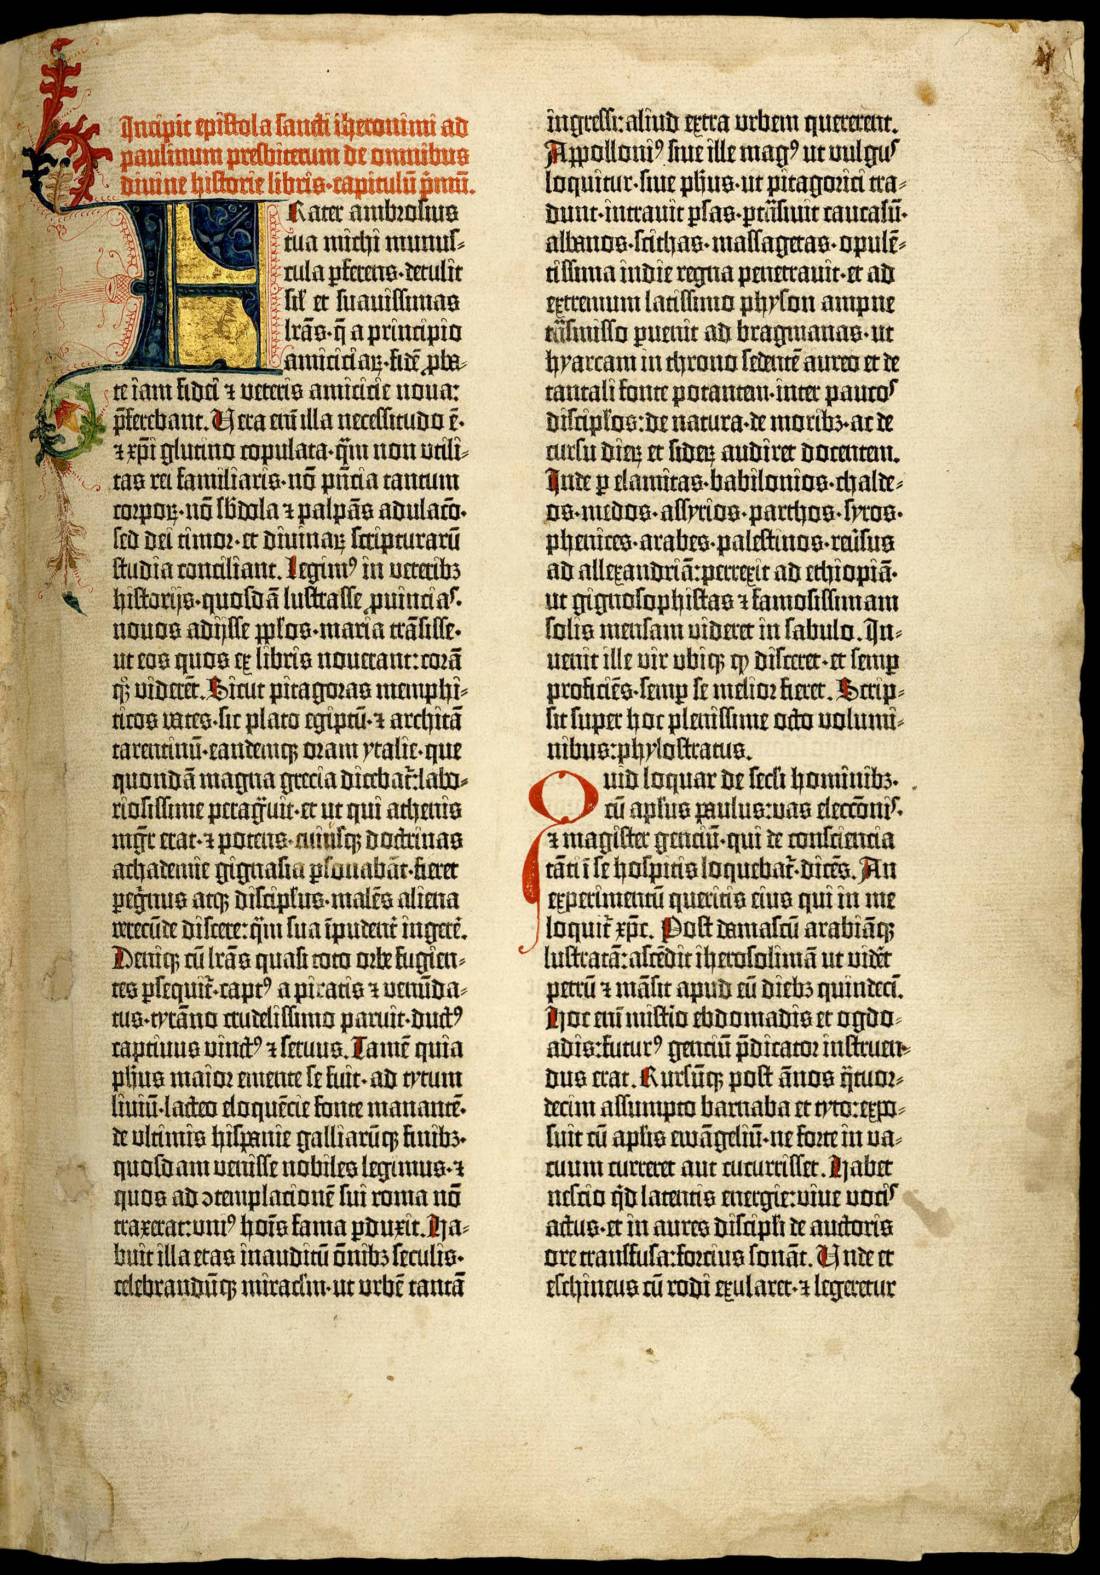 Incipit epistola sancti iheronimi ad
paulinum presbiterum de omnibus
divine historie libris·capitulū p̄mū.
FRater ambrosius
tua michi munus-
cula pferens·detulit
sil̄ et suavissimas
lr̄as·q̄ a principio
amiciciaꝝ·fidē ꝓba-
te iam fidei ⁊ veteris amicicie nova:
p̄ferebant. Vera eni illa necessitudo ē·
⁊ xp̄i glutino copulata·q̄m non utili-
tas rei familiaris·nō pn̄cia tantum
corpoꝝ·nō sb̄dola ⁊ palpās adulac̄o·
sed dei timor·et divinaꝝ scripturarū
studia conciliant. Legimꝰ in veteribꝫ
historijs·quosdā lustrasse ꝓvincias·
novos adijsse pp̄los·maria trāsisse·
ut eos quos ex libris noverant: corā
qꝫ viderēt. Sicut pitagoras memphi-
ticos vates·sic plato egiptū·⁊ architā
tarentinū·eandemqꝫ oram ytalie·que
quondā magna grecia dicebat̄: labo-
riosissime peragravit·et ut qui athenis
mgr̄ erat·⁊ potens·cuiusqꝫ doctrinas
achademie gignasia ꝑsonabāt·fieret
peg̃nus atqꝫ discipl̄us·malēs aliena
verecūde discere: q̄m sua īpudent̄ ingere̅.
Deniqꝫ cū lr̄as quasi toto orbe fugien-
tes ꝑsequit̄·captꝰ a piratis ⁊ venūda-
tus·tyrāno crudelissimo paruit·ductꝰ
captivus vinctꝰ ⁊ servus. Tamē quia
ph̄us maior emente se fuit·ad tytum
liviū·lacteo eloquēcie fonte manantē·
de ultimis hispanie galliarūqꝫ finibꝫ·
quosdam venisse nobiles legimus·⁊
quos ad ↄtemplacionē sui roma nō
traxerat: uniꝰ hoīs fama ꝑduxit. Ha-
buit illa etas inauditū ōnibꝫ seculis·
celebrandūqꝫ miraclm̄·ut urbē tantā
ingressi: aliud extra urbem quererent.
Appolloniꝰ sive ille magꝰ ut vulgus
loquitur·sive ph̄us·ut pitagorici tra-
dunt·intravit ꝑsas·ptrāsivit caucasū·
albanos·scithas·massagetas·opulē-
tissima indie regna penetravit·et ad
extremum latissimo physon ampne
trāsmisso ꝑvenit ad bragmanas·ut
hyarcam in throno sedentē aureo et de
tantali fonte potantem·inter paucos
discipl̄os: de natura·de moribꝫ·ac de
cursu dieꝝ et sideꝝ audiret docentem.
Inde ꝑ elamitas·babilonios·chalde-
os·medos·assyrios·parthos·syros·
phenices·arabes·palestinos·reūsus
ad allexandriā: perrexit ad ethiopiā·
ut gignosophistas ⁊ famosissimam
solis mensam videret in sabulo. In-
venit ille vir ubiqꝫ qꝫ disceret·et semꝑ
proficiēs·semꝑ se melior fieret. Scrip-
sit super hoc plenissime octo volumi-
nibus: phylostratus.
Quid loquar de secl̄i hominibꝫ·
cū apl̄us paulus: vas elecc̄onis·
⁊ magister genciū·qui de consciencia
tāti ī se hospitis loquebat̄·dicēs. An
experimentū queritis eius qui in me
loquit̄ xp̄c. Post damascū arabiāqꝫ
lustratā: ascēdit iherosolimā ut vidēt
petrū ⁊ māsit apud eū diebꝫ quindecī.
Hoc eni mist̄io ebdomadis et ogdo-
adis: futurꝰ genciū p̄dicator instruen-
dus erat. Rursūqꝫ post ānos q̄tuor-
decim assumpto barnaba et tyto: expo-
suit cū apl̄is ewāgeliū·ne forte in va-
cuum curreret aut cucurrisset. Habet
nescio q̄d latentis energie: vive vocis
actus·et in aures discipl̄i de auctoris
ore transfusa: forcius sonāt. Unde et
eschineus cū rodi exularet·⁊ legeretur